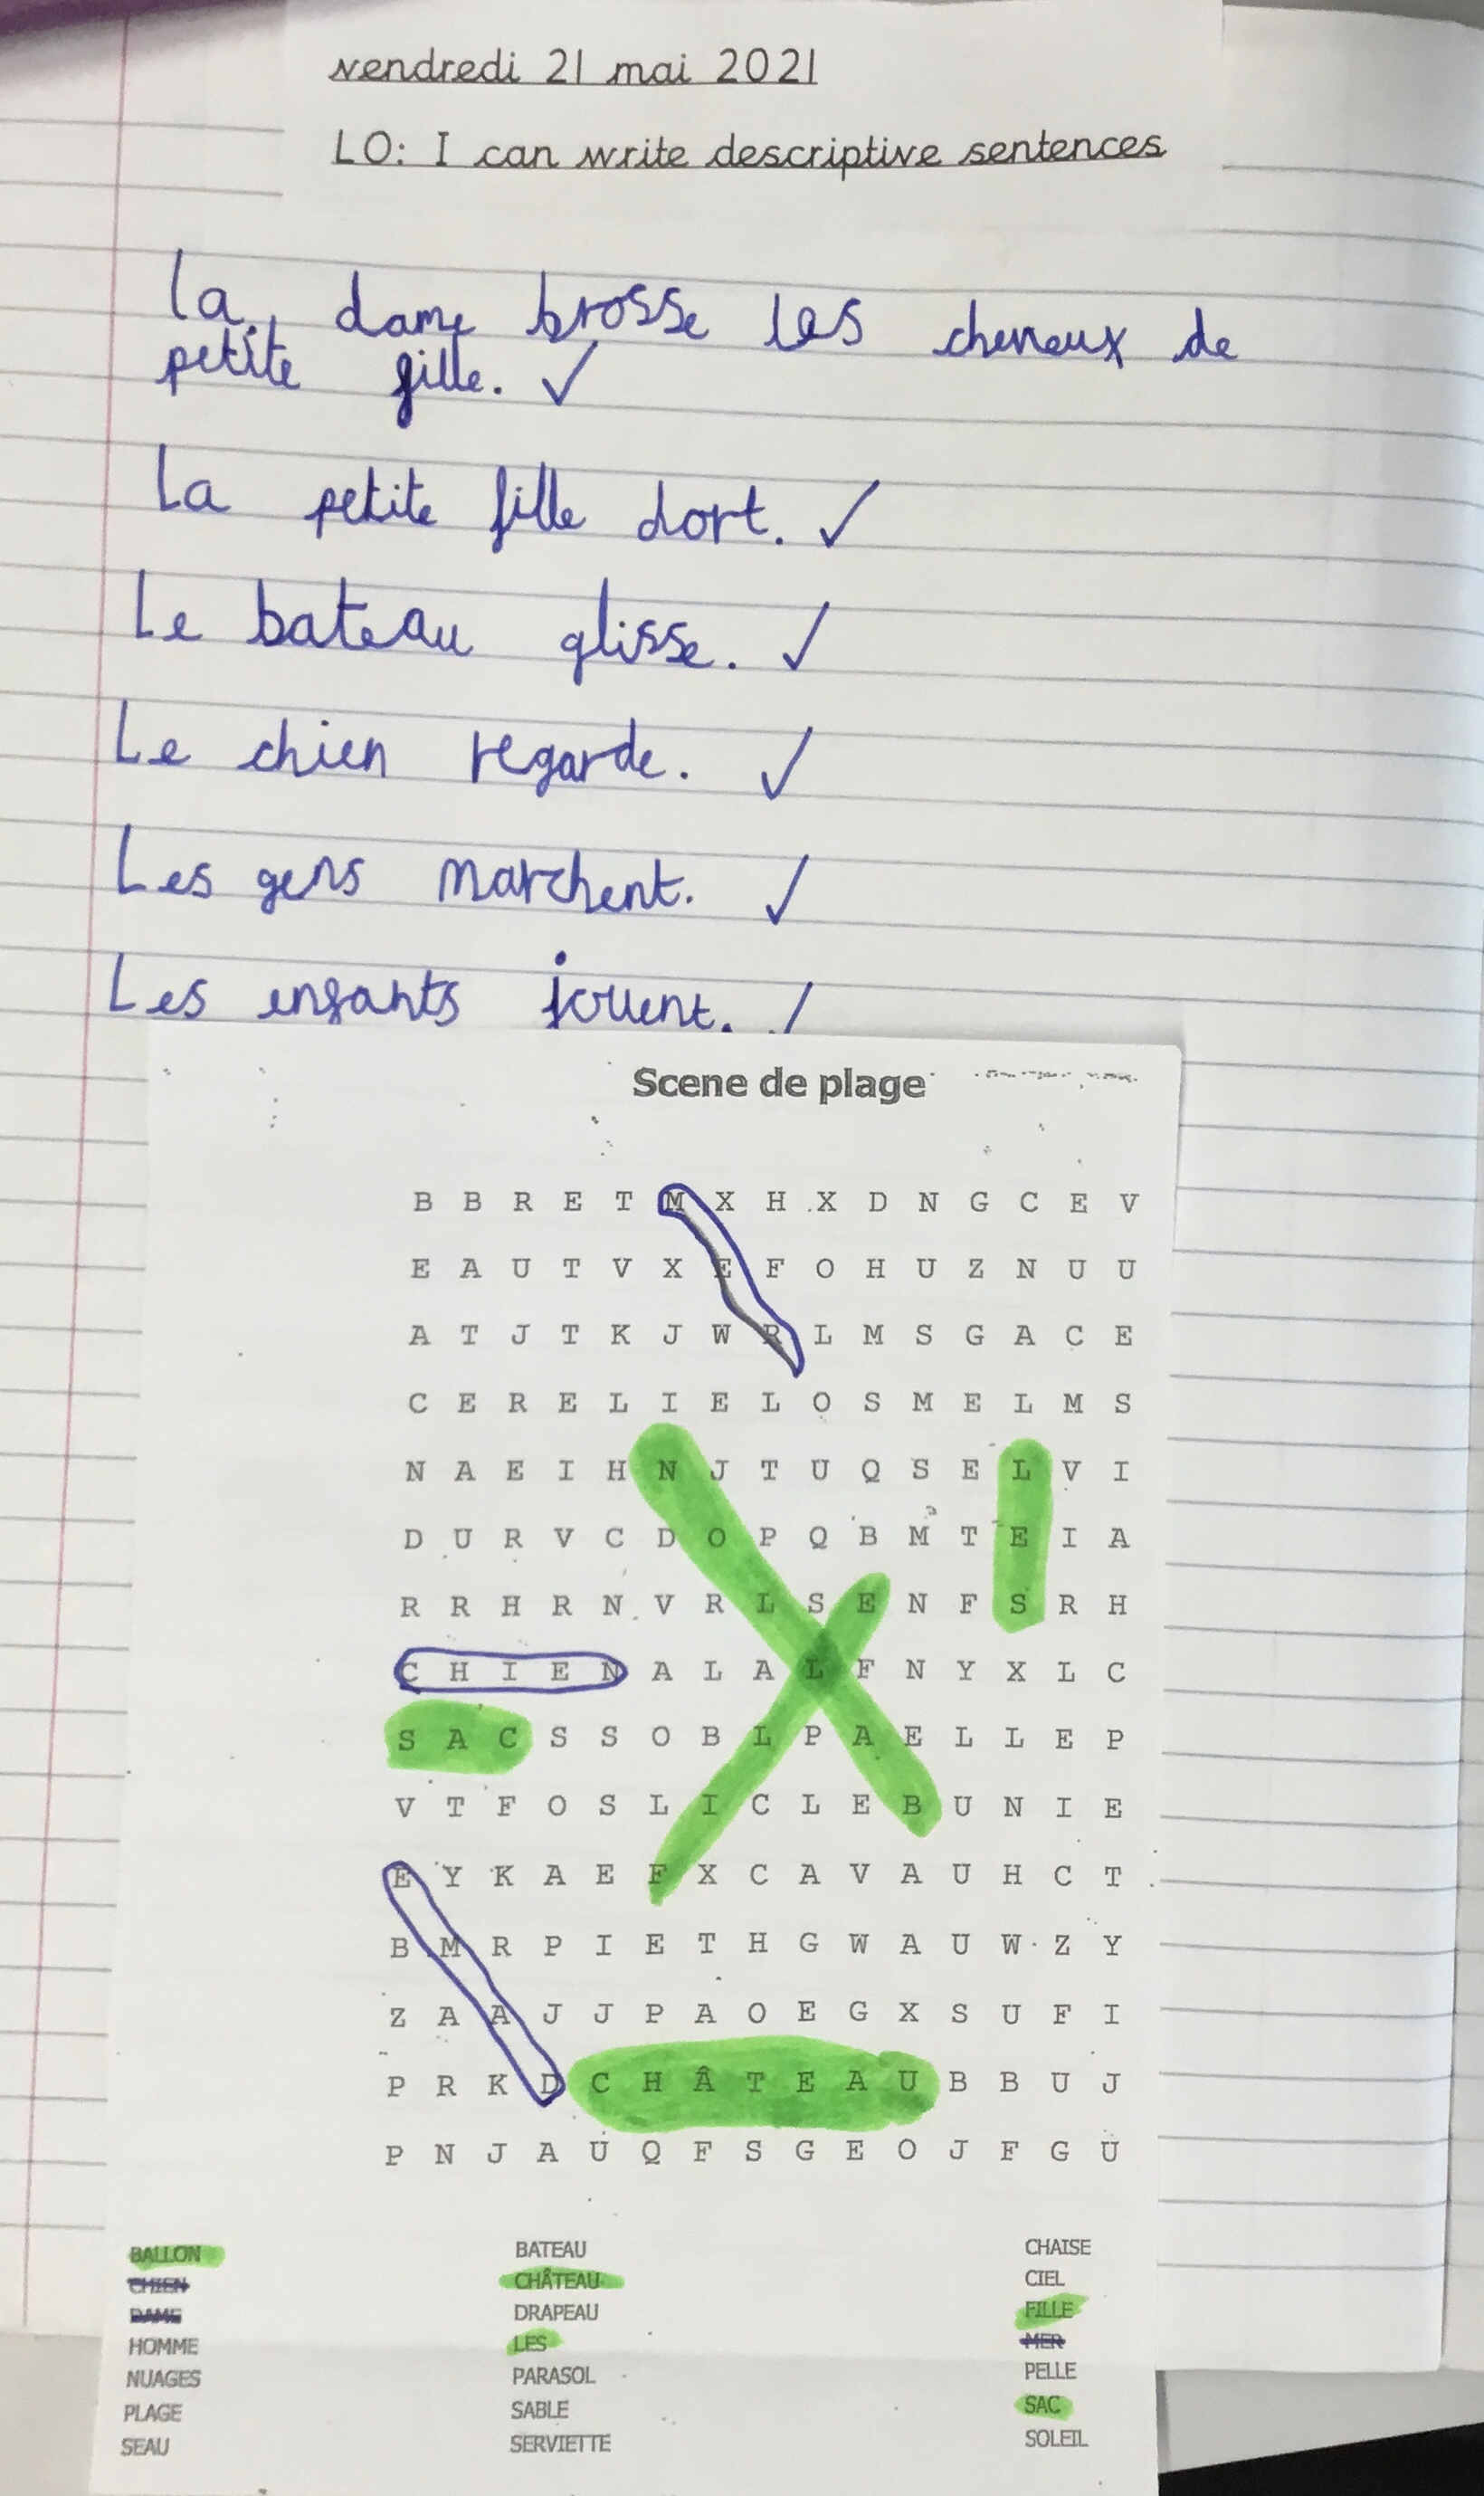 vendredi 21 mai 2021
LO: I can write descriptive sentences
la dame brosse les cheveux de
petite fille. ✓
La petite fille dort. ✓
Le bateau glisse. ✓
Le chien regarde. ✓
Les gens marchent. ✓
Les enfants jouent. ✓
Scene de plage
B B R E T M X H X D N G C E V
E A U T V X E F O H U Z N U U
A T J T K J W R L M S G A C E
C E R E L I E L O S M E L M S
N A E I H N J T U Q S E L V I
D U R V C D O P Q B M T E I A
R R H R N V R L S E N F S R H
C H I E N A L A L F N Y X L C
S A C S S O B L P A E L L E P
V T F O S L I C L E B U N I E
E Y K A E F X C A V A U H C T
B M R P I E T H G W A U W Z Y
Z A A J J P A O E G X S U F I
P R K D C H Â T E A U B B U J
P N J A U Q F S G E O J F G U
BALLON BATEAU CHAISE
CHIEN CHÂTEAU CIEL
DAME DRAPEAU FILLE
HOMME LES MER
NUAGES PARASOL PELLE
PLAGE SABLE SAC
SEAU SERVIETTE SOLEIL